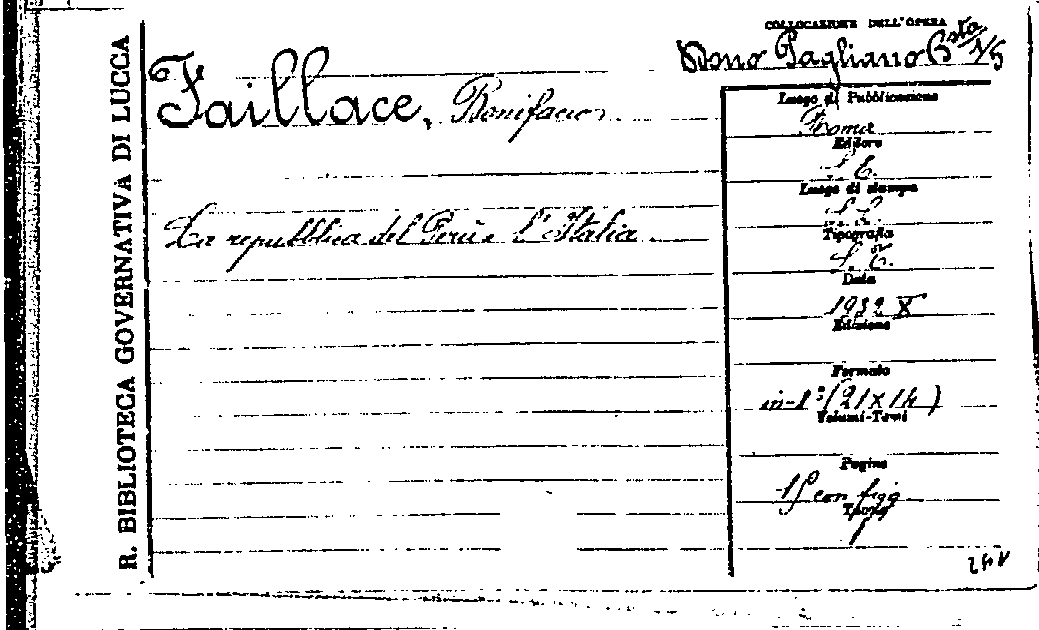 R. BIBLIOTECA GOVERNATIVA DI LUCCA
COLLOCAZIONE DELL'OPERA
Dono Pagliano Bsta 1/5
Faillace, Bonifacio
La repubblica del Perù e l'Italia
Luogo di Pubblicazione
Roma
Editore
S. E.
Luogo di stampa
S. L.
Tipografia
S. T.
Data
1932 X
Edizione
Formato
in-8° (21 x 14)
Volumi-Tomi
Pagine
con figg
Tavole